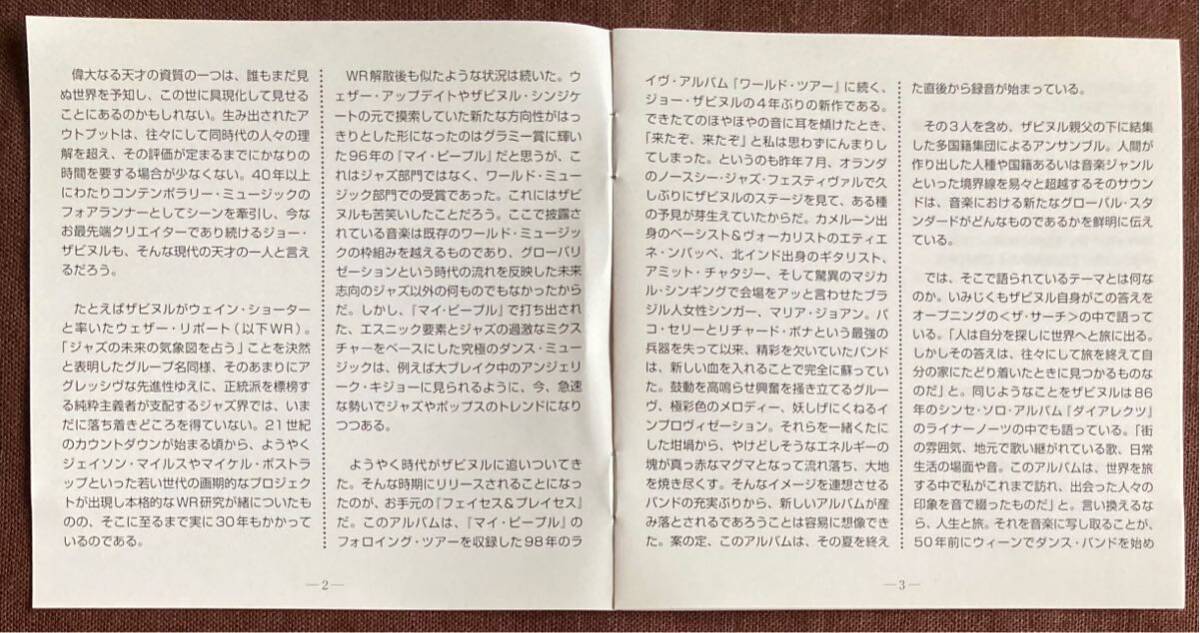 偉大なる天才の資質の一つは、誰もまだ見
ぬ世界を予知し、この世に具現化して見せる
ことにあるのかもしれない。生み出されたア
ウトプットは、往々にして同時代の人々の理
解を超え、その評価が定まるまでにかなりの
時間を要する場合が少なくない。40年以上
にわたりコンテンポラリー・ミュージックの
フォアランナーとしてシーンを牽引し、今な
お最先端クリエイターであり続けるジョー・
ザビヌルも、そんな現代の天才の一人と言え
るだろう。
たとえばザビヌルがウェイン・ショーター
と率いたウェザー・リポート(以下WR)。
「ジャズの未来の気象図を占う」ことを決然
と表明したグループ名同様、そのあまりにア
グレッシヴな先進性ゆえに、正統派を標榜す
る純粋主義者が支配するジャズ界では、いま
だに落ち着きどころを得ていない。21世紀
のカウントダウンが始まる頃から、ようやく
ジェイソン・マイルスやマイケル・ポストラ
ップといった若い世代の画期的なプロジェク
トが出現し本格的なWR研究が緒についたも
のの、そこに至るまで実に30年もかかって
いるのである。
WR解散後も似たような状況は続いた。ウ
ェザー・アップデイトやザビヌル・シンジケ
ートの元で摸索していた新たな方向性がはっ
きりとした形になったのはグラミー賞に輝い
た96年の『マイ・ピープル』だと思うが、こ
れはジャズ部門ではなく、ワールド・ミュー
ジック部門での受賞であった。これにはザビ
ヌルも苦笑いしたことだろう。ここで披露さ
れている音楽は既存のワールド・ミュージッ
クの枠組みを越えるものであり、グローバリ
ゼーションという時代の流れを反映した未来
志向のジャズ以外の何ものでもなかったから
だ。しかし、『マイ・ピープル』で打ち出され
た、エスニック要素とジャズの過激なミクス
チャーをベースにした究極のダンス・ミュー
ジックは、例えば大ブレイク中のアンジェリ
ーク・キジョーに見られるように、今、急速
な勢いでジャズやポップスのトレンドになり
つつある。
ようやく時代がザビヌルに追いついてき
た。そんな時期にリリースされることになっ
たのが、お手元の『フェイセス&プレイセス』
だ。このアルバムは、『マイ・ピープル』の
フォロイング・ツアーを収録した98年のラ
—2—
イヴ・アルバム『ワールド・ツアー』に続く、
ジョー・ザビヌルの4年ぶりの新作である。
できたてのほやほやの音に耳を傾けたとき、
「来たぞ、来たぞ」と私は思わずにんまりし
てしまった。というのも昨年7月、オランダ
のノースシー・ジャズ・フェスティヴァルで久
しぶりにザビヌルのステージを見て、ある種
の予見が芽生えていたからだ。カメルーン出
身のベーシスト&ヴォーカリストのエティエ
ネ・ンバッペ、北インド出身のギタリスト、
アミット・チャタジー、そして驚異のマジカ
ル・シンギングで会場をアッと言わせたブラ
ジル人女性シンガー、マリア・ジョアン。パ
コ・セリーとリチャード・ボナという最強の
兵器を失って以来、精彩を欠いていたバンド
は、新しい血を入れることで完全に蘇ってい
た。鼓動を高鳴らせ興奮を掻き立てるグルー
ヴ、極彩色のメロディー、妖しげにくねるイ
ンプロヴィゼーション。それらを一緒くたに
した坩堝から、やけどしそうなエネルギーの
塊が真っ赤なマグマとなって流れ落ち、大地
を焼き尽くす。そんなイメージを連想させる
バンドの充実ぶりから、新しいアルバムが産
み落とされるであろうことは容易に想像でき
た。案の定、このアルバムは、その夏を終え
た直後から録音が始まっている。
その3人を含め、ザビヌル親父の下に結集
した多国籍集団によるアンサンブル。人間が
作り出した人種や国籍あるいは音楽ジャンル
といった境界線を易々と超越するそのサウン
ドは、音楽における新たなグローバル・スタ
ンダードがどんなものであるかを鮮明に伝え
ている。
では、そこで語られているテーマとは何な
のか。いみじくもザビヌル自身がこの答えを
オープニングの〈ザ・サーチ〉の中で語って
いる。「人は自分を探しに世界へと旅に出る。
しかしその答えは、往々にして旅を終えて自
分の家にたどり着いたときに見つかるものな
のだ」と。同じようなことをザビヌルは86
年のシンセ・ソロ・アルバム『ダイアレクツ』
のライナーノーツの中でも語っている。「街
の雰囲気、地元で歌い継がれている歌、日常
生活の場面や音。このアルバムは、世界を旅
する中で私がこれまで訪れ、出会った人々の
印象を音で綴ったものだ」と。言い換えるな
ら、人生と旅。それを音楽に写し取ることが、
50年前にウィーンでダンス・バンドを始め
—3—